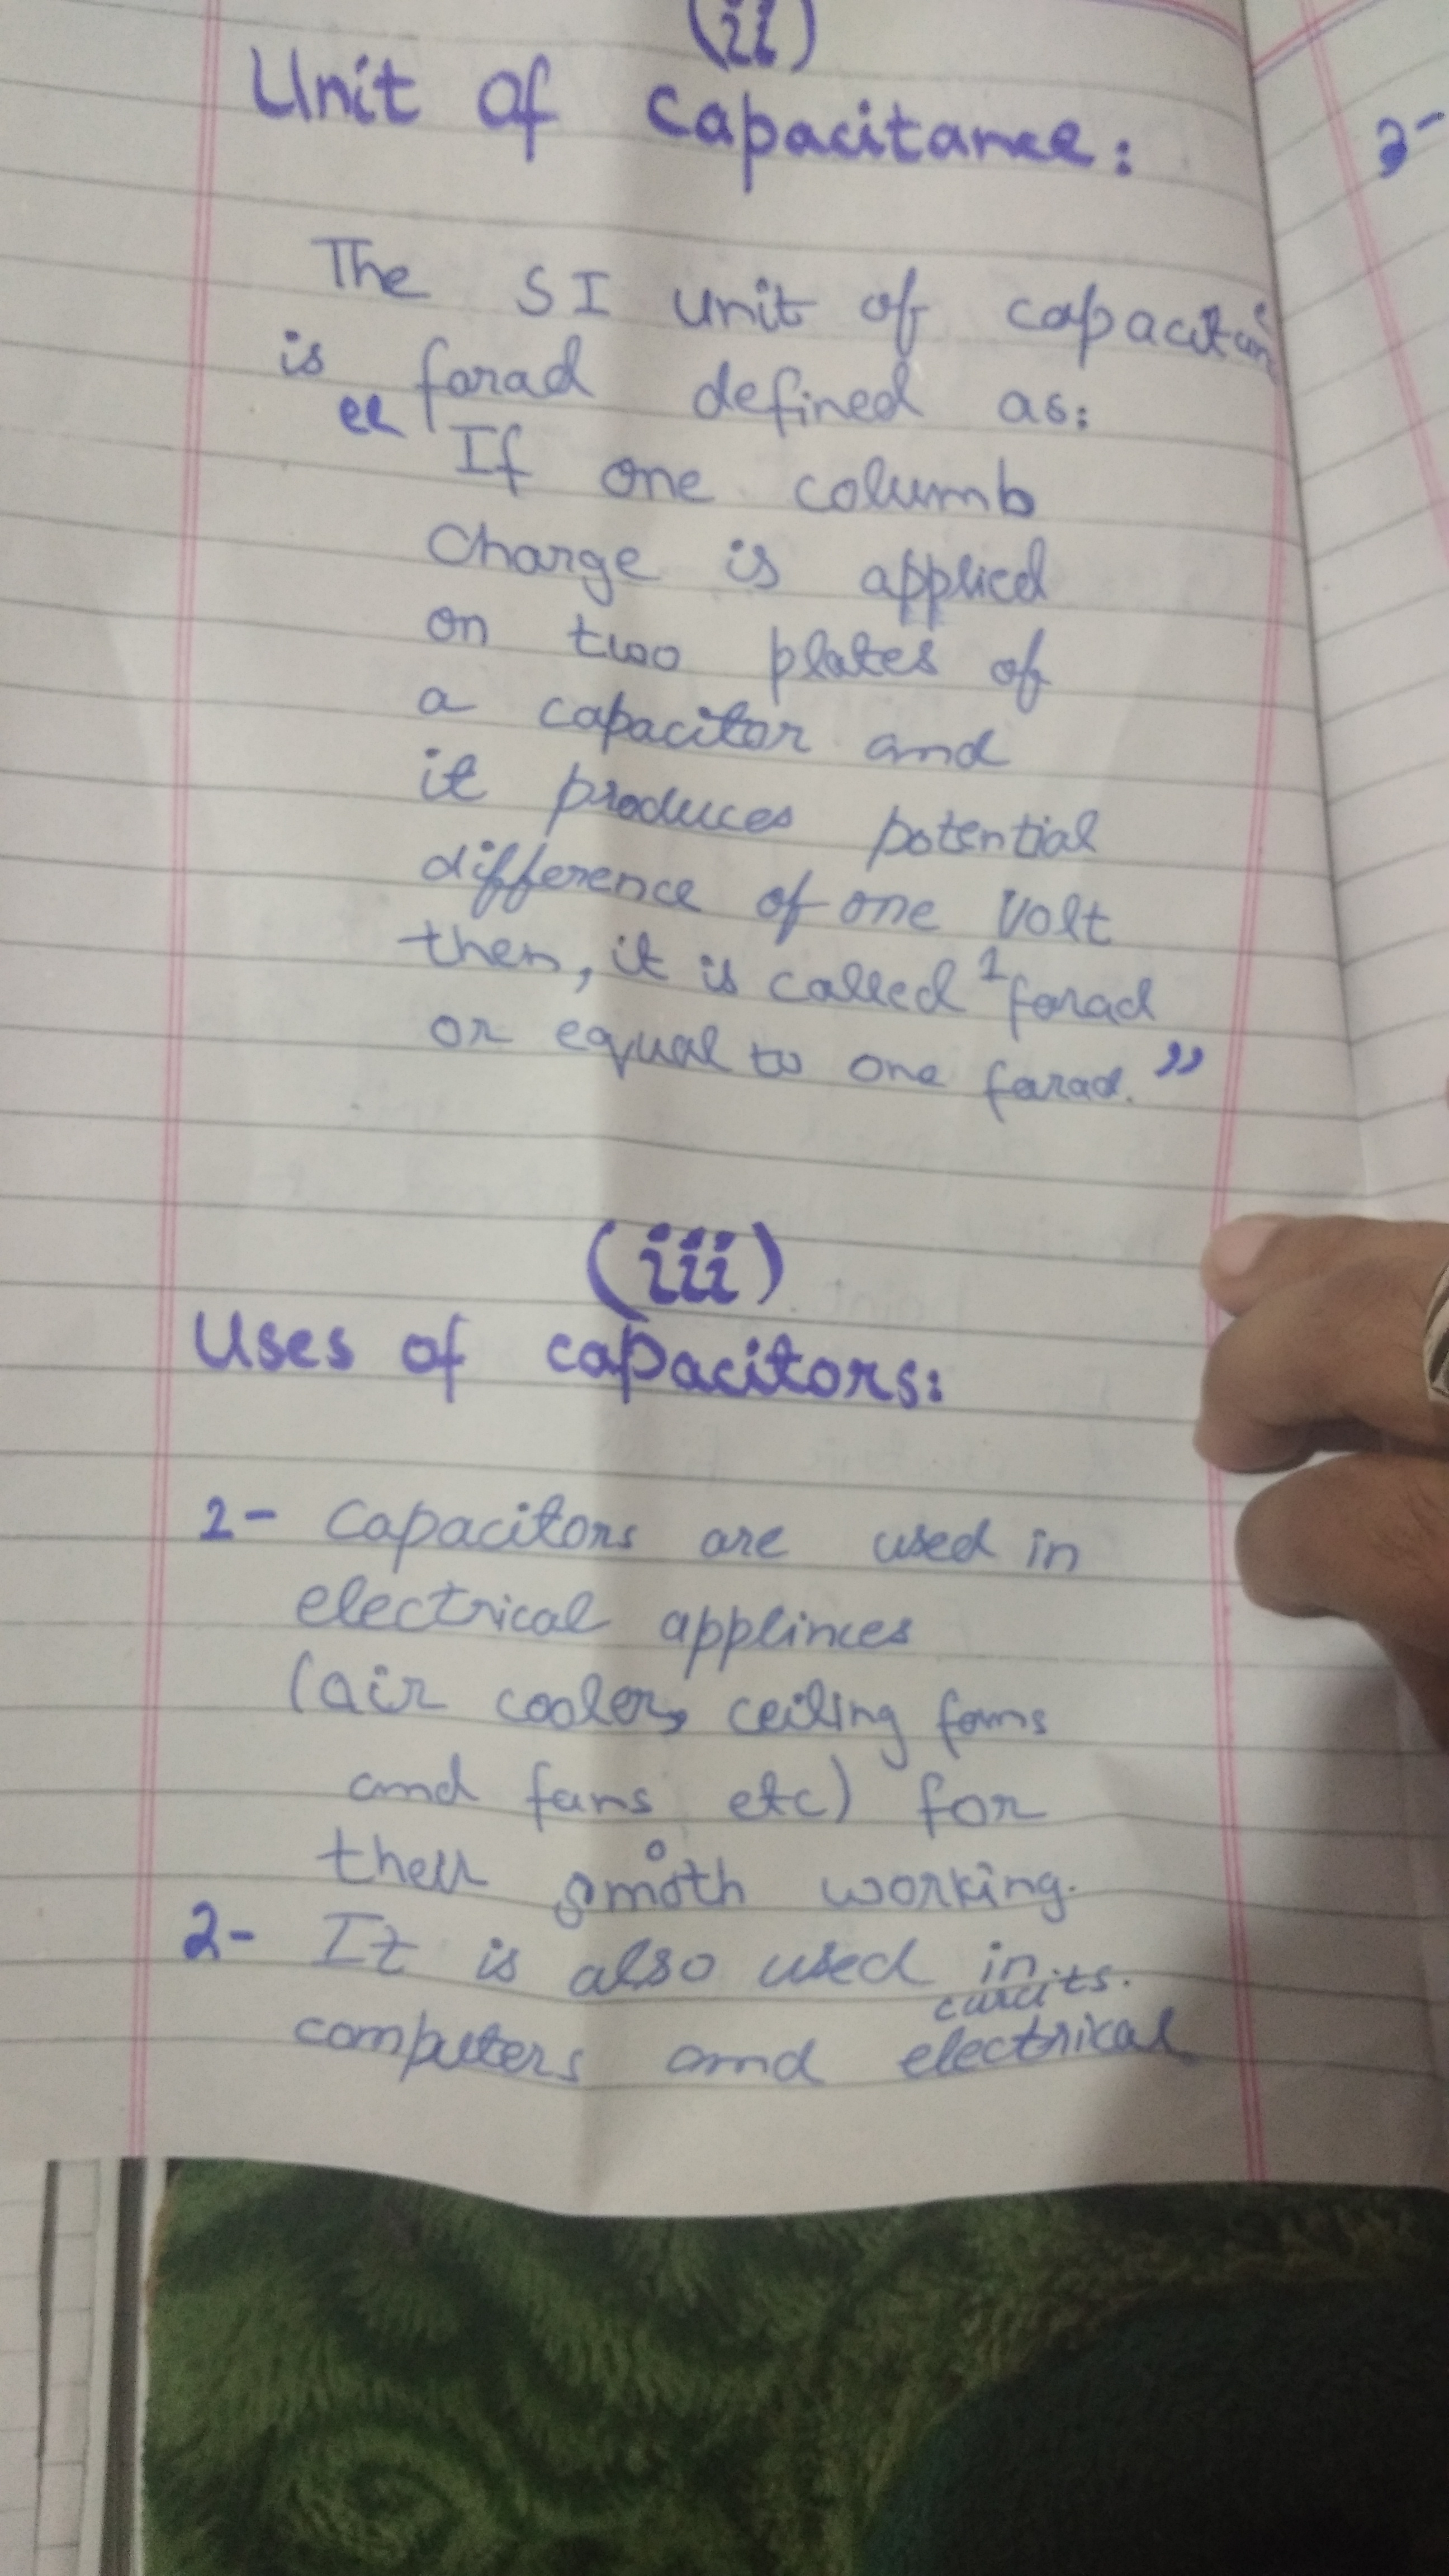 (ii)
Unit of Capacitance:
3-
The SI unit of capacitan
is farad defined as:
“If one columb
Charge is applied
on two plates of
a capacitor and
it produces potential
difference of one Volt
then, it is called 1 farad
or equal to one farad.”
(iii)
Uses of capacitors:
1- Capacitors are used in
electrical applinces
(air cooler, ceiling fans
and fans etc) for
their smoth working.
2- It is also used in
computers and electrical